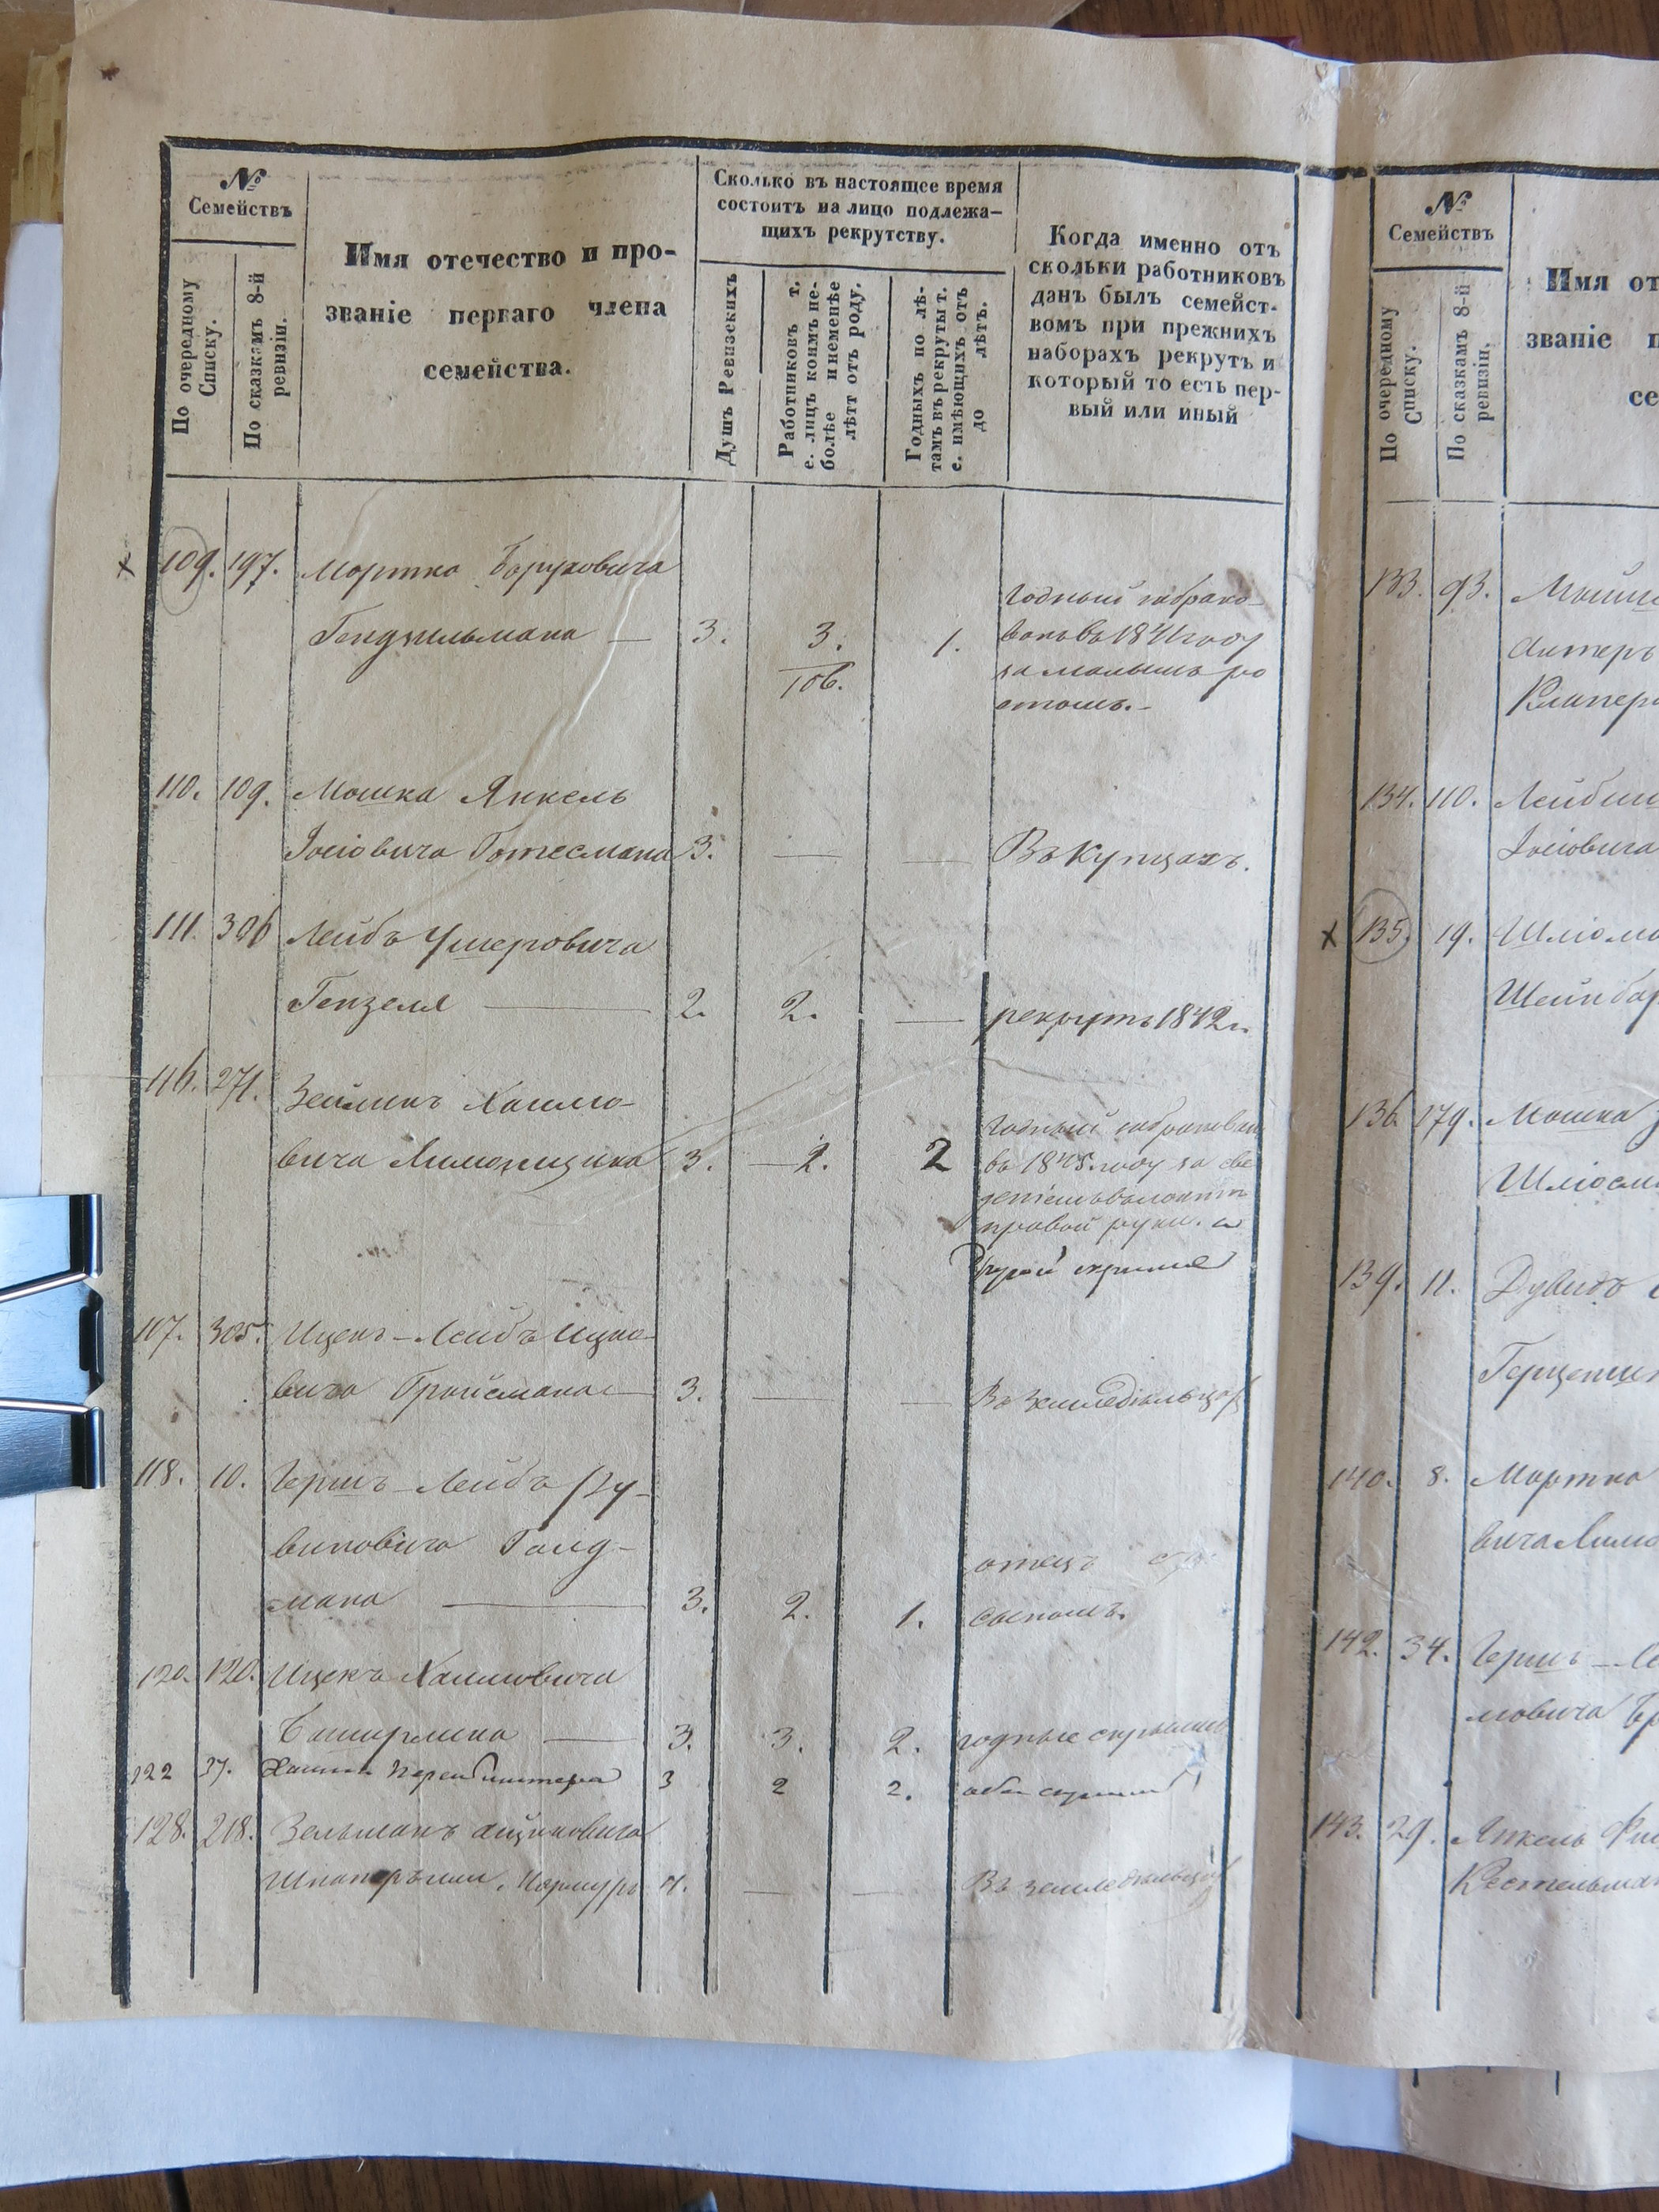 №
Семействъ
По очередному
Списку.
По сказкамъ 8-й
ревизіи.
Имя отечество и про-
званіе перваго члена
семейства.
Сколько въ настоящее время
состоитъ на лицо подлежа-
щихъ рекрутству.
Душъ Ревизскихъ
Работниковъ т.
е. лицъ коимъ не-
болѣе и неменѣе
лѣтт отъ роду.
Годныхъ по лѣ-
тамъ въ рекруты т.
е. имѣющихъ отъ
до лѣтъ.
Когда именно отъ
сколькн работниковъ
данъ былъ семейст-
вомъ при прежнихъ
наборахъ рекрутъ и
который то есть пер-
вый или иный
109. 197. Мортко Боруховича
3. 3. 1.
106.
годный забрако-
ванъ въ 1841 году
за малымъ ро
стомъ.-
110. 109. Мошка Янкель
Іосіовича Готесмана 3. — — Въ Купцахъ.
111. 306 Лейбъ Ушеровича
Гензеля — 2. 2. — рекрутъ 1842 г.
116. 271. Зейликъ Хаимо-
вича 3. — 2. 2
годный забракован
въ 1845. году за све
правой руки. а
другой скрылся
107. 305. Ицекъ-Лейбъ Ицко-
вича Гройсмана — 3. — — Въ земледѣльцахъ
118. 10. Гершъ-Лейбъ Ду-
виновича Голд-
мана — 3. 2. 1. отецъ съ
сыномъ.
120. 120. Ицекъ Хаимовича
— 3. 3. 2. годные скрылись
122 37. 3 2 2. оба скрылись
128. 218. Зельманъ
4. — — Въ земледѣльцахъ
№
Семействъ
По очередному
Списку.
По сказкамъ 8-й
ревизіи.
Имя от
званіе п
се
133. 93.
Алтеръ
134. 110.
Іосіовича
135. 19. Шліома
Шейнба
136. 179. Мошка
139. 11. Дувидъ
140. 8. Мортко
вича Лимо
142. 34. Гершъ-Ле
мовича
143. 29. Янкель
Кестельман